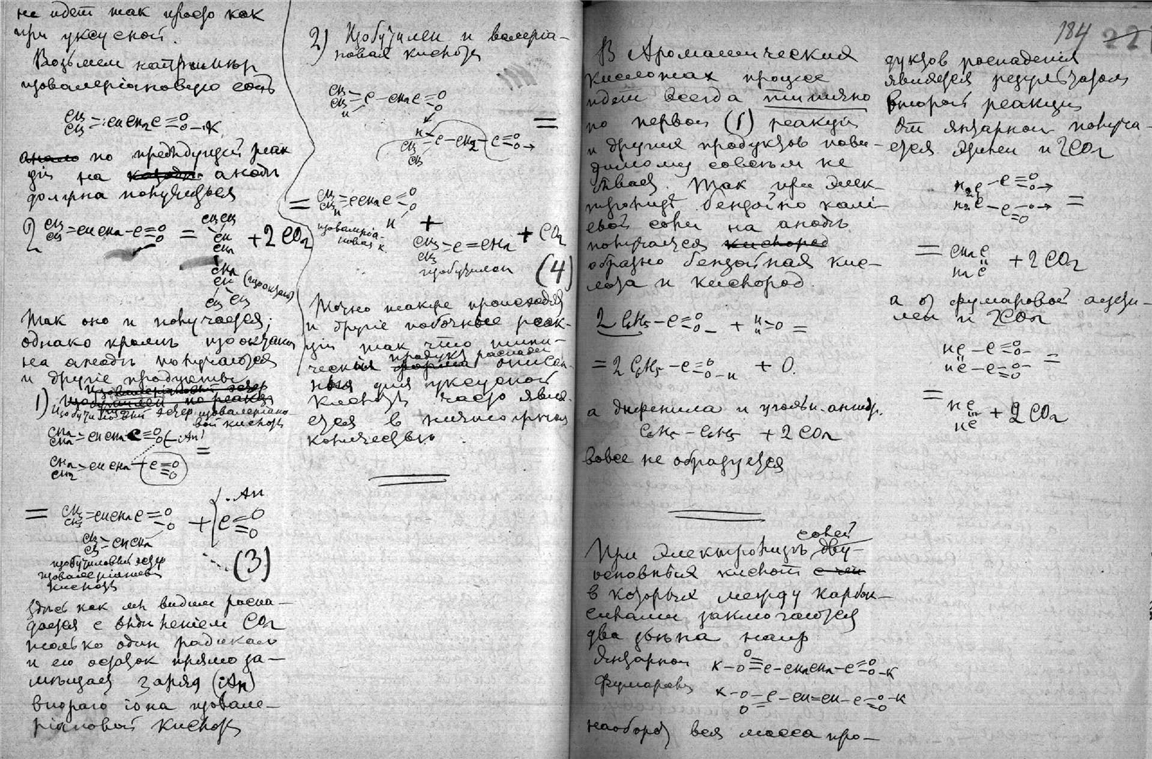 не идет так просто как
при уксусной.
Возьмем например
изовалериановую соль
CH3 CH3 = CHCH2C =O -O -K
по предыдущей реак
ции на аноде
должна получиться
2 CH3 CH3 = CHCH2-C =O =O = CH3CH3 CH CH2 CH2 CH CH3CH3 + 2CO2
Так оно и получается;
однако кроме
на аноде получаются
и другие продукты
1) Изобутиловый эфир изовалериано
вой кислоты
=
= CH3 CH3 = CHCH2C =O O + C =O O
CH3 CH3 = CHCH2
изобутиловый эфир
изовалериановой
кислоты
(3)
здесь как мы видим распа-
дается с выделением CO2
только один радикал
и его остаток прямо за-
мещает заряд (An)
второго иона изовале-
риановой кислоты
2) Изобутилен и валериа-
новая кислота
=
= CH3 CH3 = CCH2C =O O
H H
изовалериа
новая к
+
CH3 CH3 = C = CH2 + CO2
изобутилен
(4)
Точно также происходят
и другие побочные реак-
ции так что типи-
ческий продукт распада
для уксусной
кислоты часто явля-
ется в ничтожном
количестве.
184
В Ароматических
кислотах процесс
идет всегда типично
по первой (1) реакции
и других продуктов пови-
димому совсем не
бывает. Так при элек
тролизе бензойно кали
евой соли на аноде
получается
обратно бензойная кис-
лота и кислород
2 C6H5-C =O O- + H H =O =
= 2 C6H5-C =O O-H + O.
а дифенила и угольн. ангидр.
C6H5-C6H5 + 2CO2
вовсе не образуется
При электролизе солей дву-
основных кислот
в которых между карбок-
силами заключаются
два звена напр
Янтарной K-O O =C-CH2CH2-C =O O-K
Фумаровой K-O O =C-CH=CH-C =O O-K
наоборот вся масса про-
дуктов распадения
является результатом
второй реакции
От янтарной получа-
ется этилен и 2CO2
H2C-C =O O →
H2C-C =O O →
=
= CH2 H2C + 2CO2
а от фумаровой ацети-
лен и 2CO2
HC-C =O O-
HC-C =O O-
=
= HC HC + 2CO2